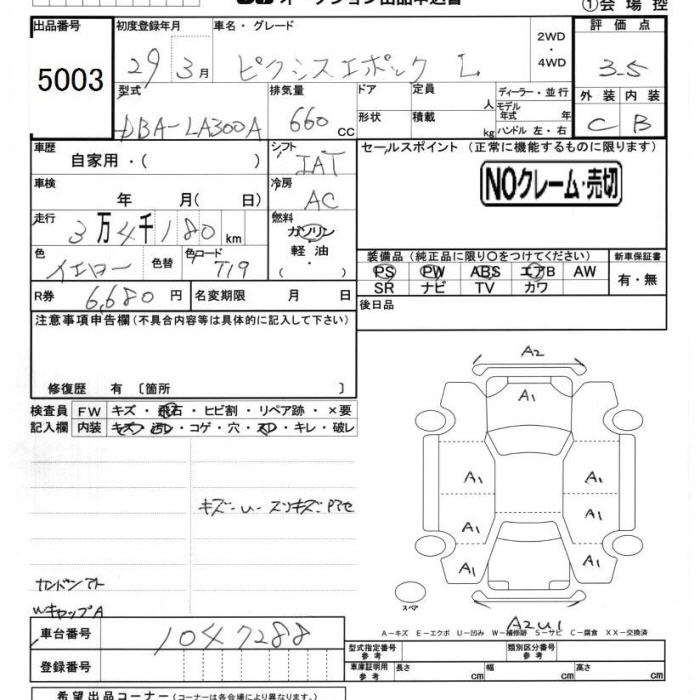 ①会場控
出品番号 5003
初度登録年月 29年 3月
車名・グレード ピクシスエポック L
2WD・4WD
評価点 3.5
外装 C 内装 B
型式 DBA-LA300A
排気量 660 cc
ドア
定員 人
形状
積載 kg
ディーラー・並行
モデル年式 年
ハンドル 左・右
車歴 自家用・( )
シフト IAT
セールスポイント (正常に機能するものに限ります)
NOクレーム・売切
車検 年 月( 日)
冷房 AC
走行 3万4千180 km
燃料 ガソリン・軽油・
色 イエロー 色替 色コード T19
装備品 (純正品に限り○をつけてください)
PS PW ABS エアB AW
SR ナビ TV カワ
新車保証書 有・無
R券 6,680円 名変期限 月 日
後日品
注意事項申告欄 (不具合内容等は具体的に記入して下さい)
修復歴 有 〔箇所 〕
検査員記入欄
FW キズ・飛石・ヒビ割・リペア跡・×要
内装 キズ・汚レ・コゲ・穴・スレ・キレ・破レ
キズ・U・スリキズ
WキャップA
A2
A1
A1 A1
A1 A1
A1 A1
スペア
A2U1
A-キズ E-エクボ U-凹み W-補修跡 S-サビ C-腐食 XX-交換済
車台番号 1047288
登録番号
型式指定番号 参考
類別区分番号 参考
車庫証明用 参考 長さ cm 幅 cm 高さ cm
希望出品コーナー (コーナーは各会場により異なります。)